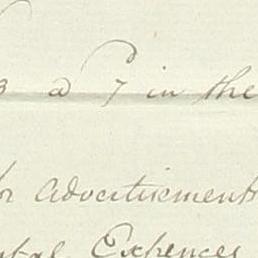 3 a 7 in the
or Advertisement
Expences